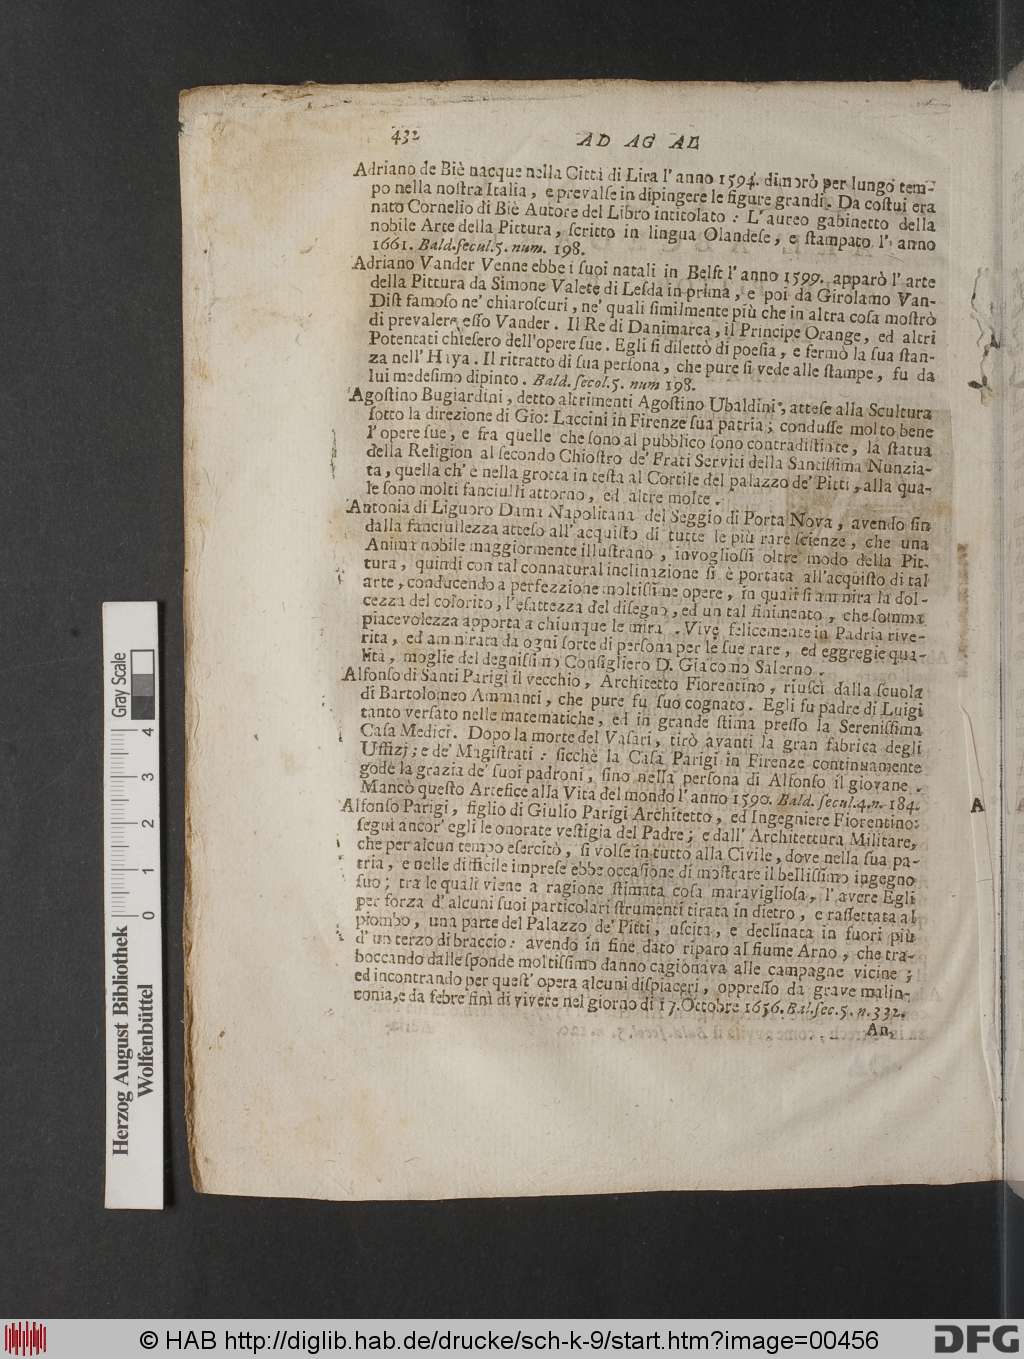 432 AD AG AL
Adriano de Biè nacque nella Città di Lira l'anno 1594. dimorò per lungo tem-
po nella nostra Italia, e prevalse in dipingere le figure grandi. Da costui era
nato Cornelio di Biè Autore del Libro intitolato: L'aureo gabinetto della
nobile Arte della Pittura, scritto in lingua Olandese, e stampato l'anno
1661. Bald. secul. 5. num. 198.
Adriano Vander Venne ebbe i suoi natali in Belft l'anno 1599. apparò l'arte
della Pittura da Simone Valete di Lesda in prima, e poi da Girolamo Van-
Dist famoso ne' chiaroscuri, ne' quali similmente più che in altra cosa mostrò
di prevalere esso Vander. Il Re di Danimarca, il Principe Orange, ed altri
Potentati chiesero dell'opere sue. Egli si dilettò di poesia, e fermò la sua stan-
za nell' Haya. Il ritratto di sua persona, che pure si vede alle stampe, fu da
lui medesimo dipinto. Bald. secol. 5. num 198.
Agostino Bugiardini, detto altrimenti Agostino Ubaldini, attese alla Scultura
sotto la direzione di Gio: Laccini in Firenze sua patria; condusse molto bene
l'opere sue, e fra quelle che sono al pubblico sono contradistinte, la statua
della Religion al secondo Chiostro de' Frati Serviti della Santissima Nunzia-
ta, quella ch' è nella grotta in testa al Cortile del palazzo de' Pitti, alla qua-
le sono molti fanciulli attorno, ed altre molte.
Antonia di Liguoro Dama Napolitana del Seggio di Porta Nova, avendo sin
dalla fanciullezza atteso all'acquisto di tutte le più rare scienze, che una
Anima nobile maggiormente illustrano, invogliossi oltre modo della Pit-
tura, quindi con tal connatural inclinazione si è portata all'acquisto di tal
arte, conducendo a perfezzione moltissime opere, in quali si ammira la dol-
cezza del colorito, l'esattezza del disegno, ed un tal finimento, che somma
piacevolezza apporta a chiunque le mira. Vive felicemente in Padria rive-
rita, ed ammirata da ogni sorte di persona per le sue rare, ed eggregie qua-
lità, moglie del degnissimo Consigliero D. Giacomo Salerno.
Alfonso di Santi Parigi il vecchio, Architetto Fiorentino, riuscì dalla scuola
di Bartolomeo Ammanti, che pure fu suo cognato. Egli fu padre di Luigi
tanto versato nelle matematiche, ed in grande stima presso la Serenissima
Casa Medici. Dopo la morte del Vasari, tirò avanti la gran fabrica degli
Uffizj; e de' Magistrati: sicchè la Casa Parigi in Firenze continuamente
gode la grazia de' suoi padroni, sino nella persona di Alfonso il giovane.
Mancò questo Artefice alla Vita del mondo l'anno 1590. Bald. secul. 4. n. 184.
Alfonso Parigi, figlio di Giulio Parigi Architetto, ed Ingegniere Fiorentino:
seguì ancor' egli le onorate vestigia del Padre; e dall' Architettura Militare,
che per alcun tempo esercitò, si volse in tutto alla Civile, dove nella sua pa-
tria, e nelle difficile imprese ebbe occasione di mostrare il bellissimo ingegno
suo; tra le quali viene a ragione stimata cosa maravigliosa, l'avere Egli
per forza d'alcuni suoi particolari strumenti tirata in dietro, e rassettata al
piombo, una parte del Palazzo de' Pitti, uscita, e declinata in fuori più
d'un terzo di braccio: avendo in fine dato riparo al fiume Arno, che tra-
boccando dalle sponde moltissimo danno cagionava alle campagne vicine;
ed incontrando per quest' opera alcuni dispiaceri, oppresso da grave malin-
conia, e da febre finì di vivere nel giorno di 17. Ottobre 1656. Bal. sec. 5. n. 332.
An-
A
Gray Scale
4
3
2
1
0
Herzog August Bibliothek
Wolfenbüttel
© HAB http://diglib.hab.de/drucke/sch-k-9/start.htm?image=00456
DFG